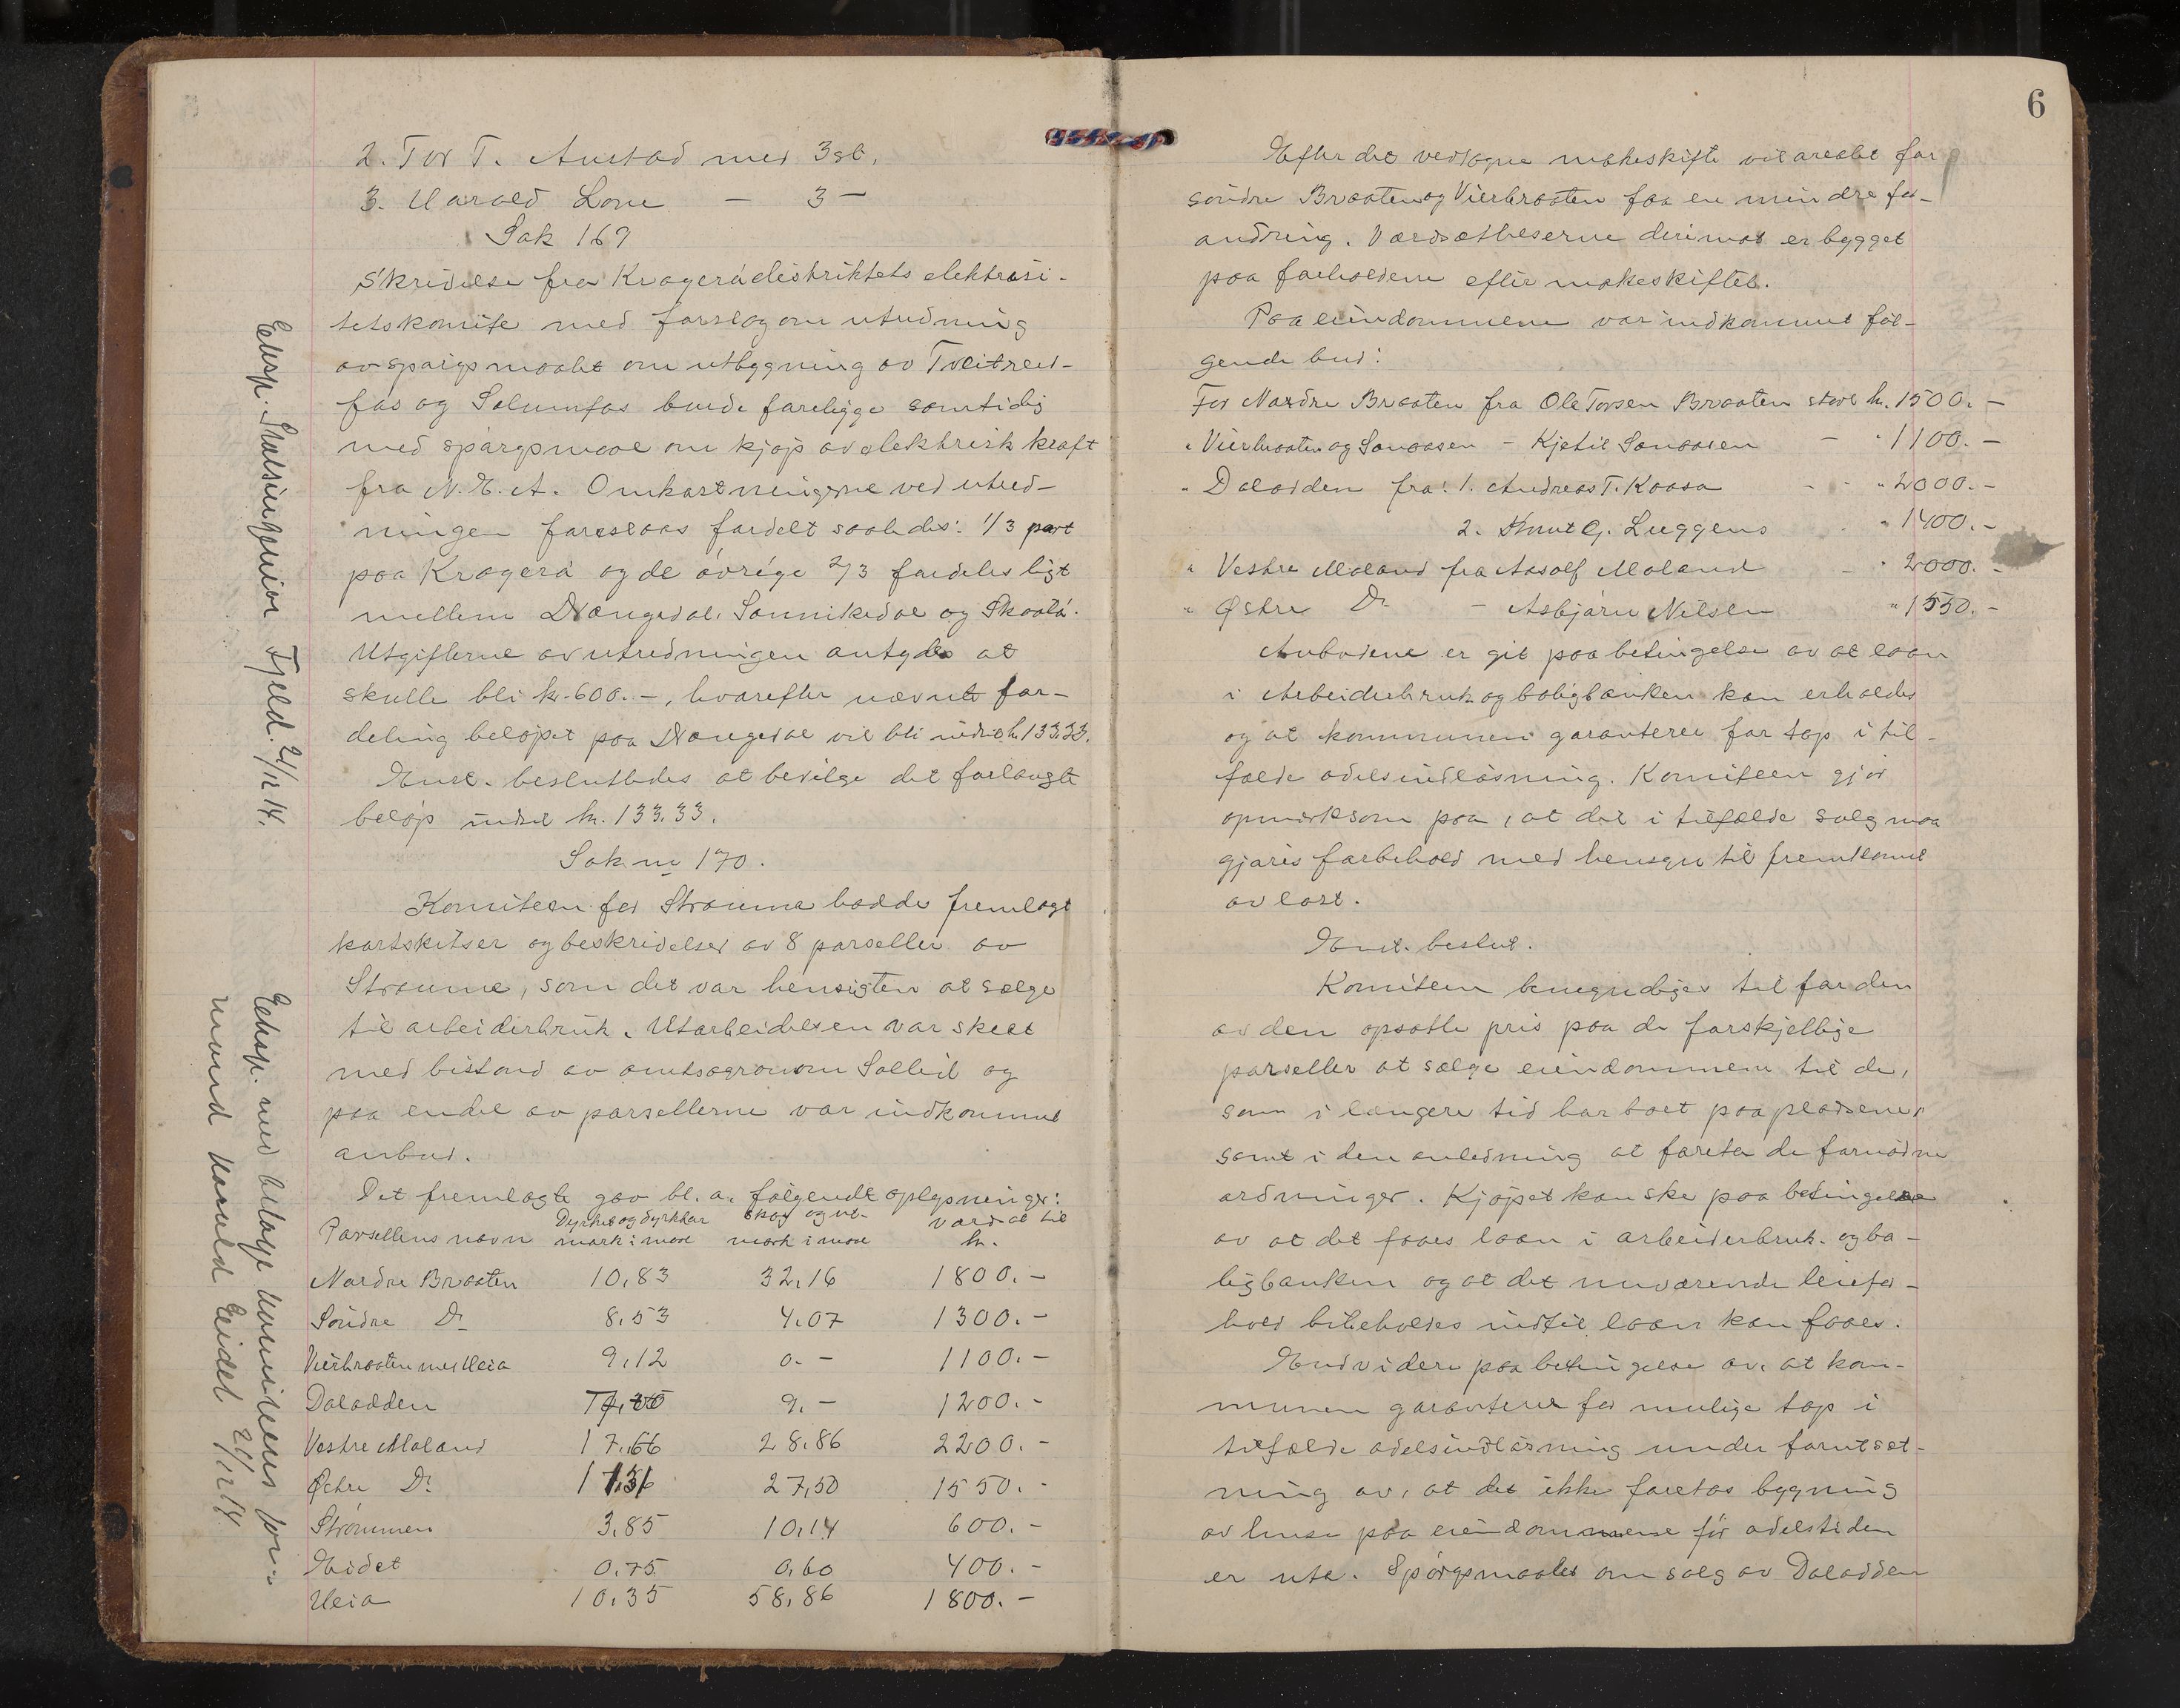 2. Tor T. Austad med 3 st.
3. Harald Lone — 3 —
Sak 169
Skrivelse fra Kragerødistriktets elektrisi-
tetskomite med forslag om utredning
av spørgsmaalet om utbygning av Tveitreid-
fos og Solumfos burde foreligge samtidig
med spørgsmaal om kjøp av elektrisk kraft
fra N. E. A. Omkostningerne ved utred-
ningen foreslaas fordelt saaledes: 1/3 part
paa Kragerø og de øvrige 2/3 fordeles ligt
mellem Drangedal, Sannikedal og Skaatø.
Utgifterne av utredningen antydes at
skulle bli kr. 600.-, hvorefter nævnte for-
deling beløpet paa Drangedal vil bli indtil kr. 133.33.
Enst. besluttedes at bevilge det forlangte
beløp indtil kr. 133.33.
Sak nr 170.
Komiteen for Straume hadde fremlagt
kartskitser og beskrivelser av 8 parseller av
Straume, som det var hensigten at sælge
til arbeiderbruk. Utarbeidelsen var skeet
med bistand av amtsagronom Solleid og
paa endel av parsellerne var indkommet
anbud.
Det fremlagte gav bl. a. følgende oplysninger:
Parsellens navn Dyrket og dyrkbar mark i maal Skog og ut- mark i maal Værdsat til kr.
Nordre Braaten 10,83 32,16 1800.-
Søndre Do 8,53 4,07 1300.-
Vierbraaten med Heia 9,12 0.- 1100.-
Dalodden 9.- 1200.-
Vestre Moland 17,66 28,86 2200.-
Østre Do 27,50 1550.-
Strømmen 3,85 10,14 600.-
Eidet 0,75 0,60 400.-
Heia 10,35 58,86 1800.-
Eksp. Fjeld. 21/12 14.
Eksp. med bilage komiteens for-
mand Harald Eidet 21/12 14.
6
Efter det vedtagne makeskifte vil arealet for
søndre Braaten og Vierbraaten faa en mindre for-
andring. Værdsættelserne derimot er bygget
paa forholdene efter makeskiftet.
Paa eiendommene var indkommet føl-
gende bud:
For Nordre Braaten fra Ole Torsen Braaten stort kr. 1500.-
" Vierbraaten og Sanaasen - Kjetil Sanaasen - " 1100.-
" Dalodden fra: 1. Andreas T. Kaasa - - " 2000.-
2. Knut G. Luggens " 1400.-
" Vestre Moland fra Aasolf Moland - " 2000.-
" Østre Do - Asbjørn Nilsen " 1550.-
Anbudene er git paa betingelse av at laan
i Arbeiderbruk og boligbanken kan erholdes
og at kommunen garanterer for tap i til-
fælde odelsindløsning. Komiteen gjør
opmerksom paa, at det i tilfælde salg maa
gjøres forbehold med hensyn til fremkomst
av last.
Enst. beslut.
Komiteen bemyndiges til for den
av den opsatte pris paa de forskjellige
parseller at sælge eiendommene til de,
som i længere tid har boet paa pladsene,
samt i den anledning at foreta de fornødne
ordninger. Kjøpet kan ske paa betingelse
av at det faaes laan i arbeiderbruk- og bo-
ligbanken og at det nuværende leiefor-
hold bibeholdes indtil laan kan faaes.
Endvidere paa betingelse av, at kom-
munen garanterer for mulige tap i
tilfælde odelsindløsning under forutset-
ning av, at det ikke foretas bygning
av huse paa eiendommene før odelstiden
er ute. Spørgsmaalet om salg av Dalodden